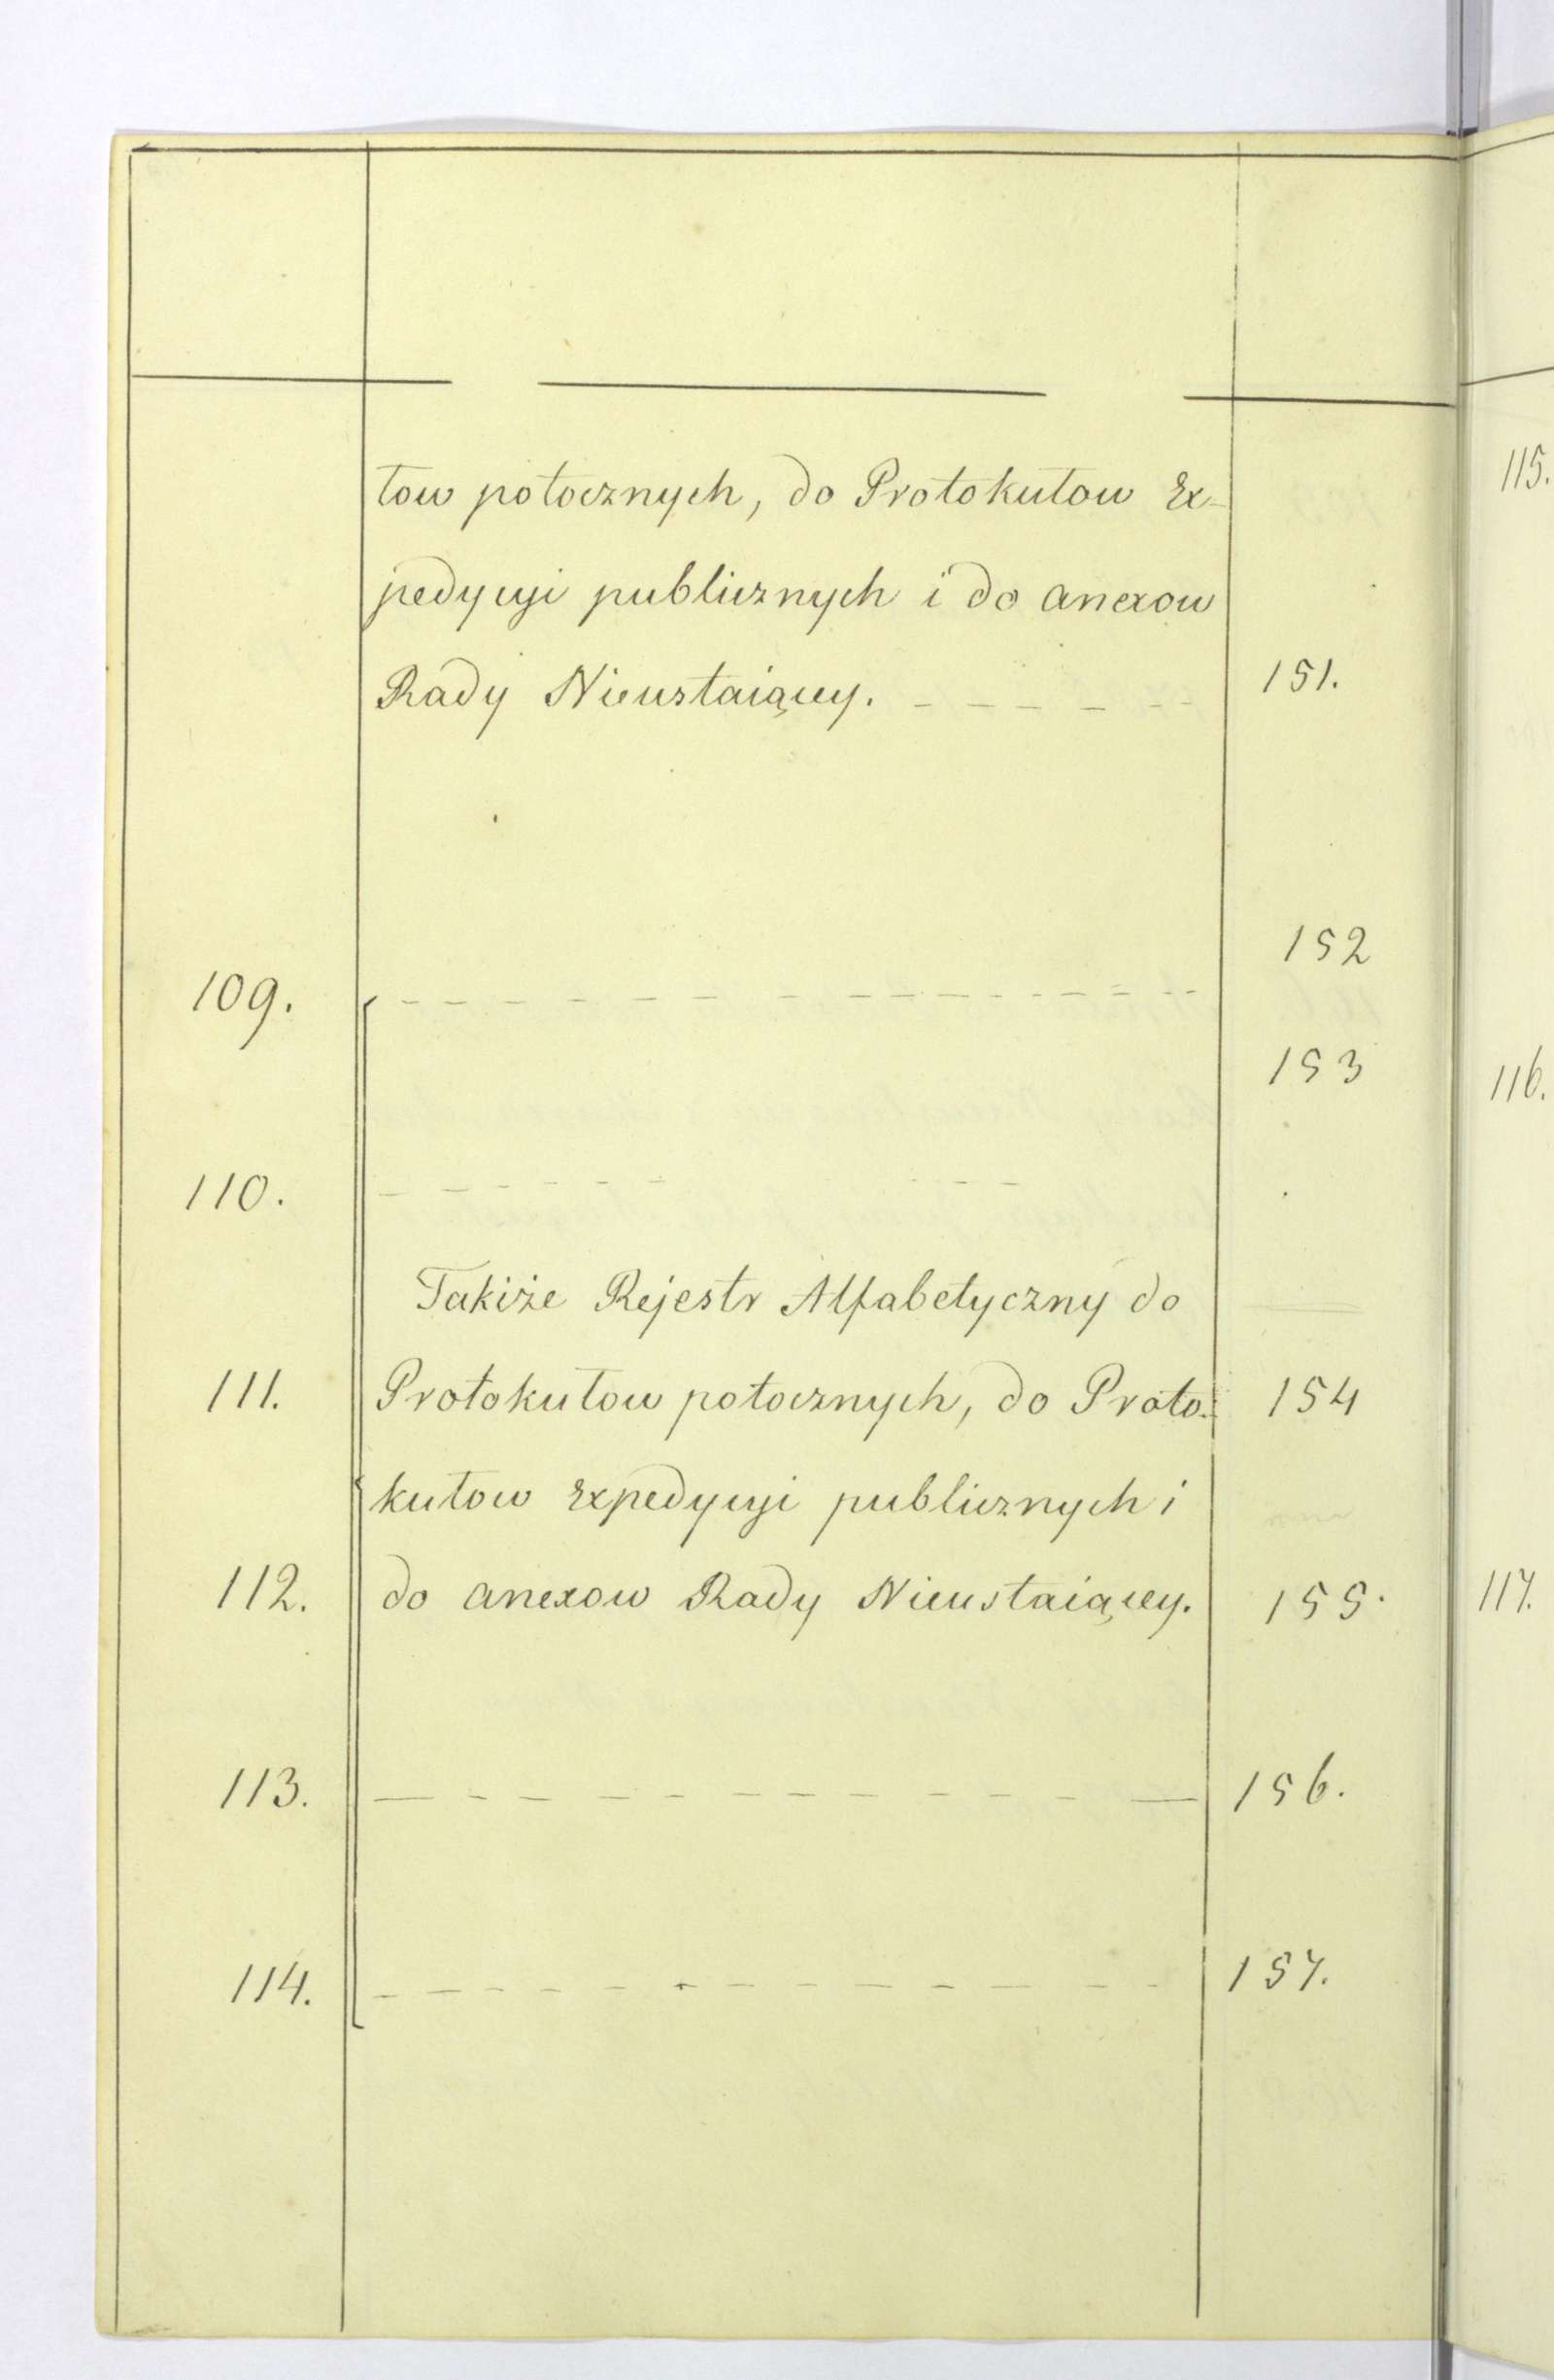 tow potocznych, do Protokułow Ex-
pedycyi publicznych i do anexow
Rady Nieustaiącey. - - - - - - 151.
152
109. - - - - - - - - - - - - - - -
153
110. - - - - - - - - -
Takiże Rejestr Alfabetyczny do
111. Protokułow potocznych, do Proto- 154
kułow Expedycyi publicznych i
112. do anexow Rady Nieustaiącey. 155.
113. - - - - - - - - - - - - - 156.
114. - - - - - - - - - - - - - - 157.
115.
116.
117.